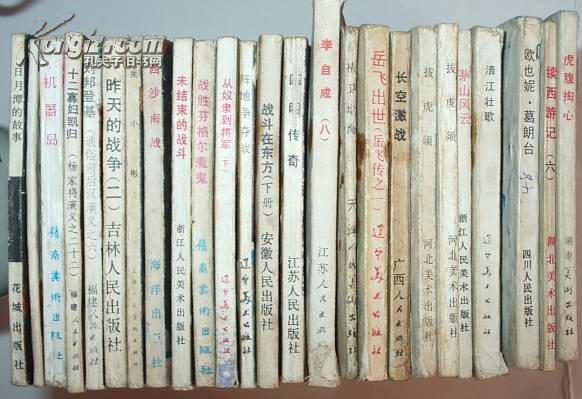 Kongfz.com
孔夫子旧书网
日月潭的故事
花城出版社
机器岛
岭南美术出版社
十二寡妇凯归
(杨家将演义之二十二)
福建人民出版社
刘邦登基
(通俗前后汉演义之六)
福建人
昨天的战争(二)
吉林人民出版社
朱小彬
西沙海战
海洋出版社
未结束的战斗
浙江人民美术出版社
战胜芬格尔魔鬼
岭南美术出版社
从奴隶到将军(下)
辽宁美术出版社
阵地争夺战
辽宁
战斗在东方(下册)
安徽人民出版社
传奇
江苏人民出版社
李自成(八)
江苏人民出版社
天津
岳飞出世(岳飞传之一)
辽宁美术出版社
长空激战
广西人民出版社
拔虎须
河北美术出版社
拔虎须
河北美术出版社
茅山风云
浙江人民美术出版社
清江壮歌
辽宁美术出版社
欧也妮·葛朗台
四川人民出版社
续西游记(六)
湖北美术出版社
虎腹掏心
湖南美术出版社